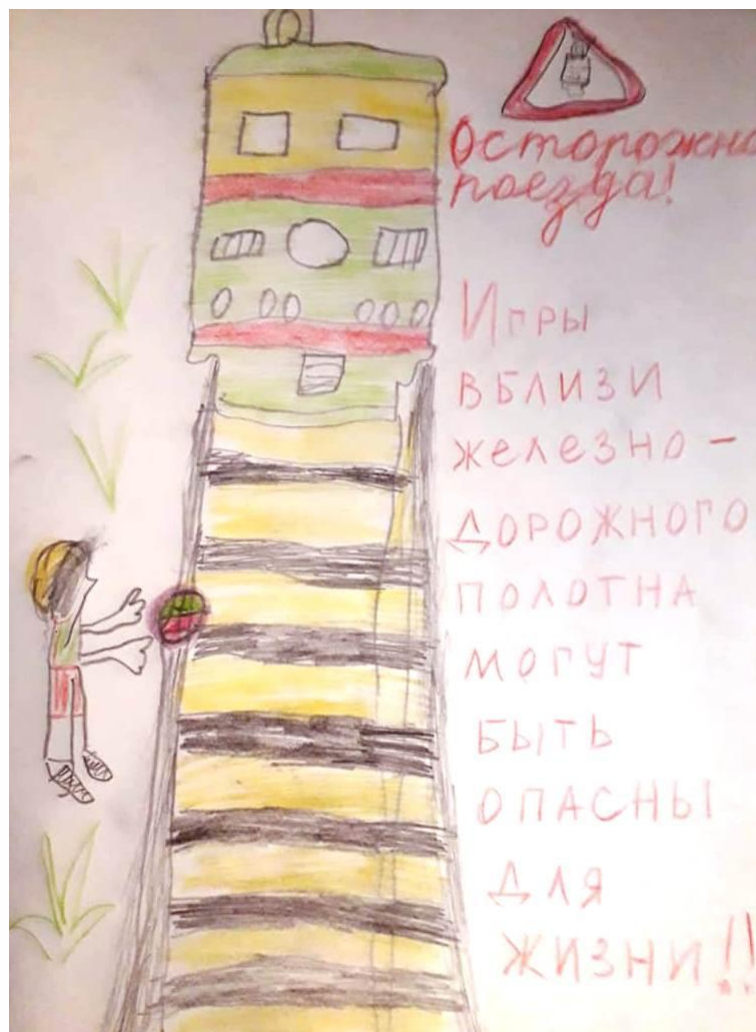 Осторожно
поезда!
Игры
вблизи
железно-
дорожного
полотна
могут
быть
опасны
для
жизни!!